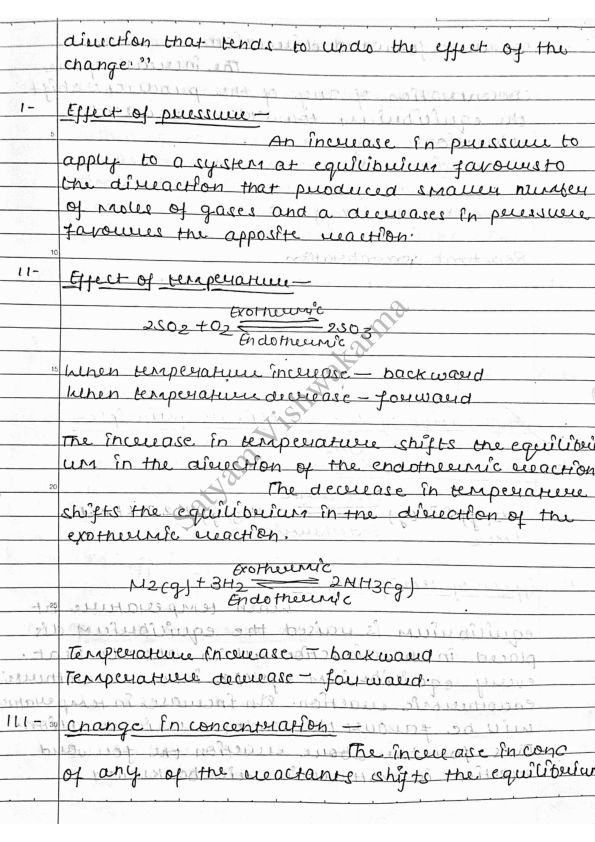 direction that tends to undo the effect of the
change."
I- Effect of pressure —
An increase in pressure to
apply to a system at equilibrium favours to
the direaction that produced smaller number
of moles of gases and a decreases in pressure
favoures the apposite reaction.
II- Effect of temperature —
Exothermic
2SO2 + O2 ⇌ 2SO3
Endothermic
When temperature increase — backward
When temperature decrease — forward
The increase in temperature shifts the equilibri
um in the direction of the endothermic reaction
The decrease in temperature
shifts the equilibrium in the direction of the
exothermic reaction.
Exothermic
N2(g) + 3H2 ⇌ 2NH3(g)
Endothermic
Temperature increase — backward
Temperature decrease — forward.
III- change in concentration —
The increase in conc
of any of the reactants shifts the equilibrium
5
10
15
20
25
30
Satyam Vishwakarma